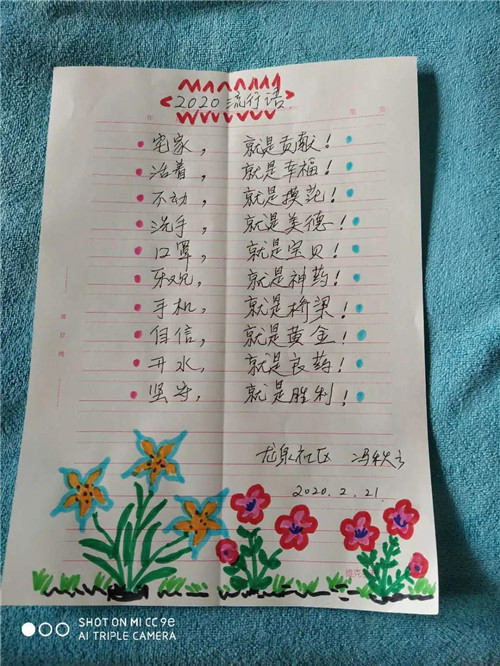 2020流行语
宅家，就是贡献！
活着，就是幸福！
不动，就是模范！
洗手，就是美德！
口罩，就是宝贝！
乐观，就是神药！
手机，就是桥梁！
自信，就是黄金！
开水，就是良药！
坚守，就是胜利！
龙泉社区
2020.2.21.
SHOT ON MI CC 9e
AI TRIPLE CAMERA